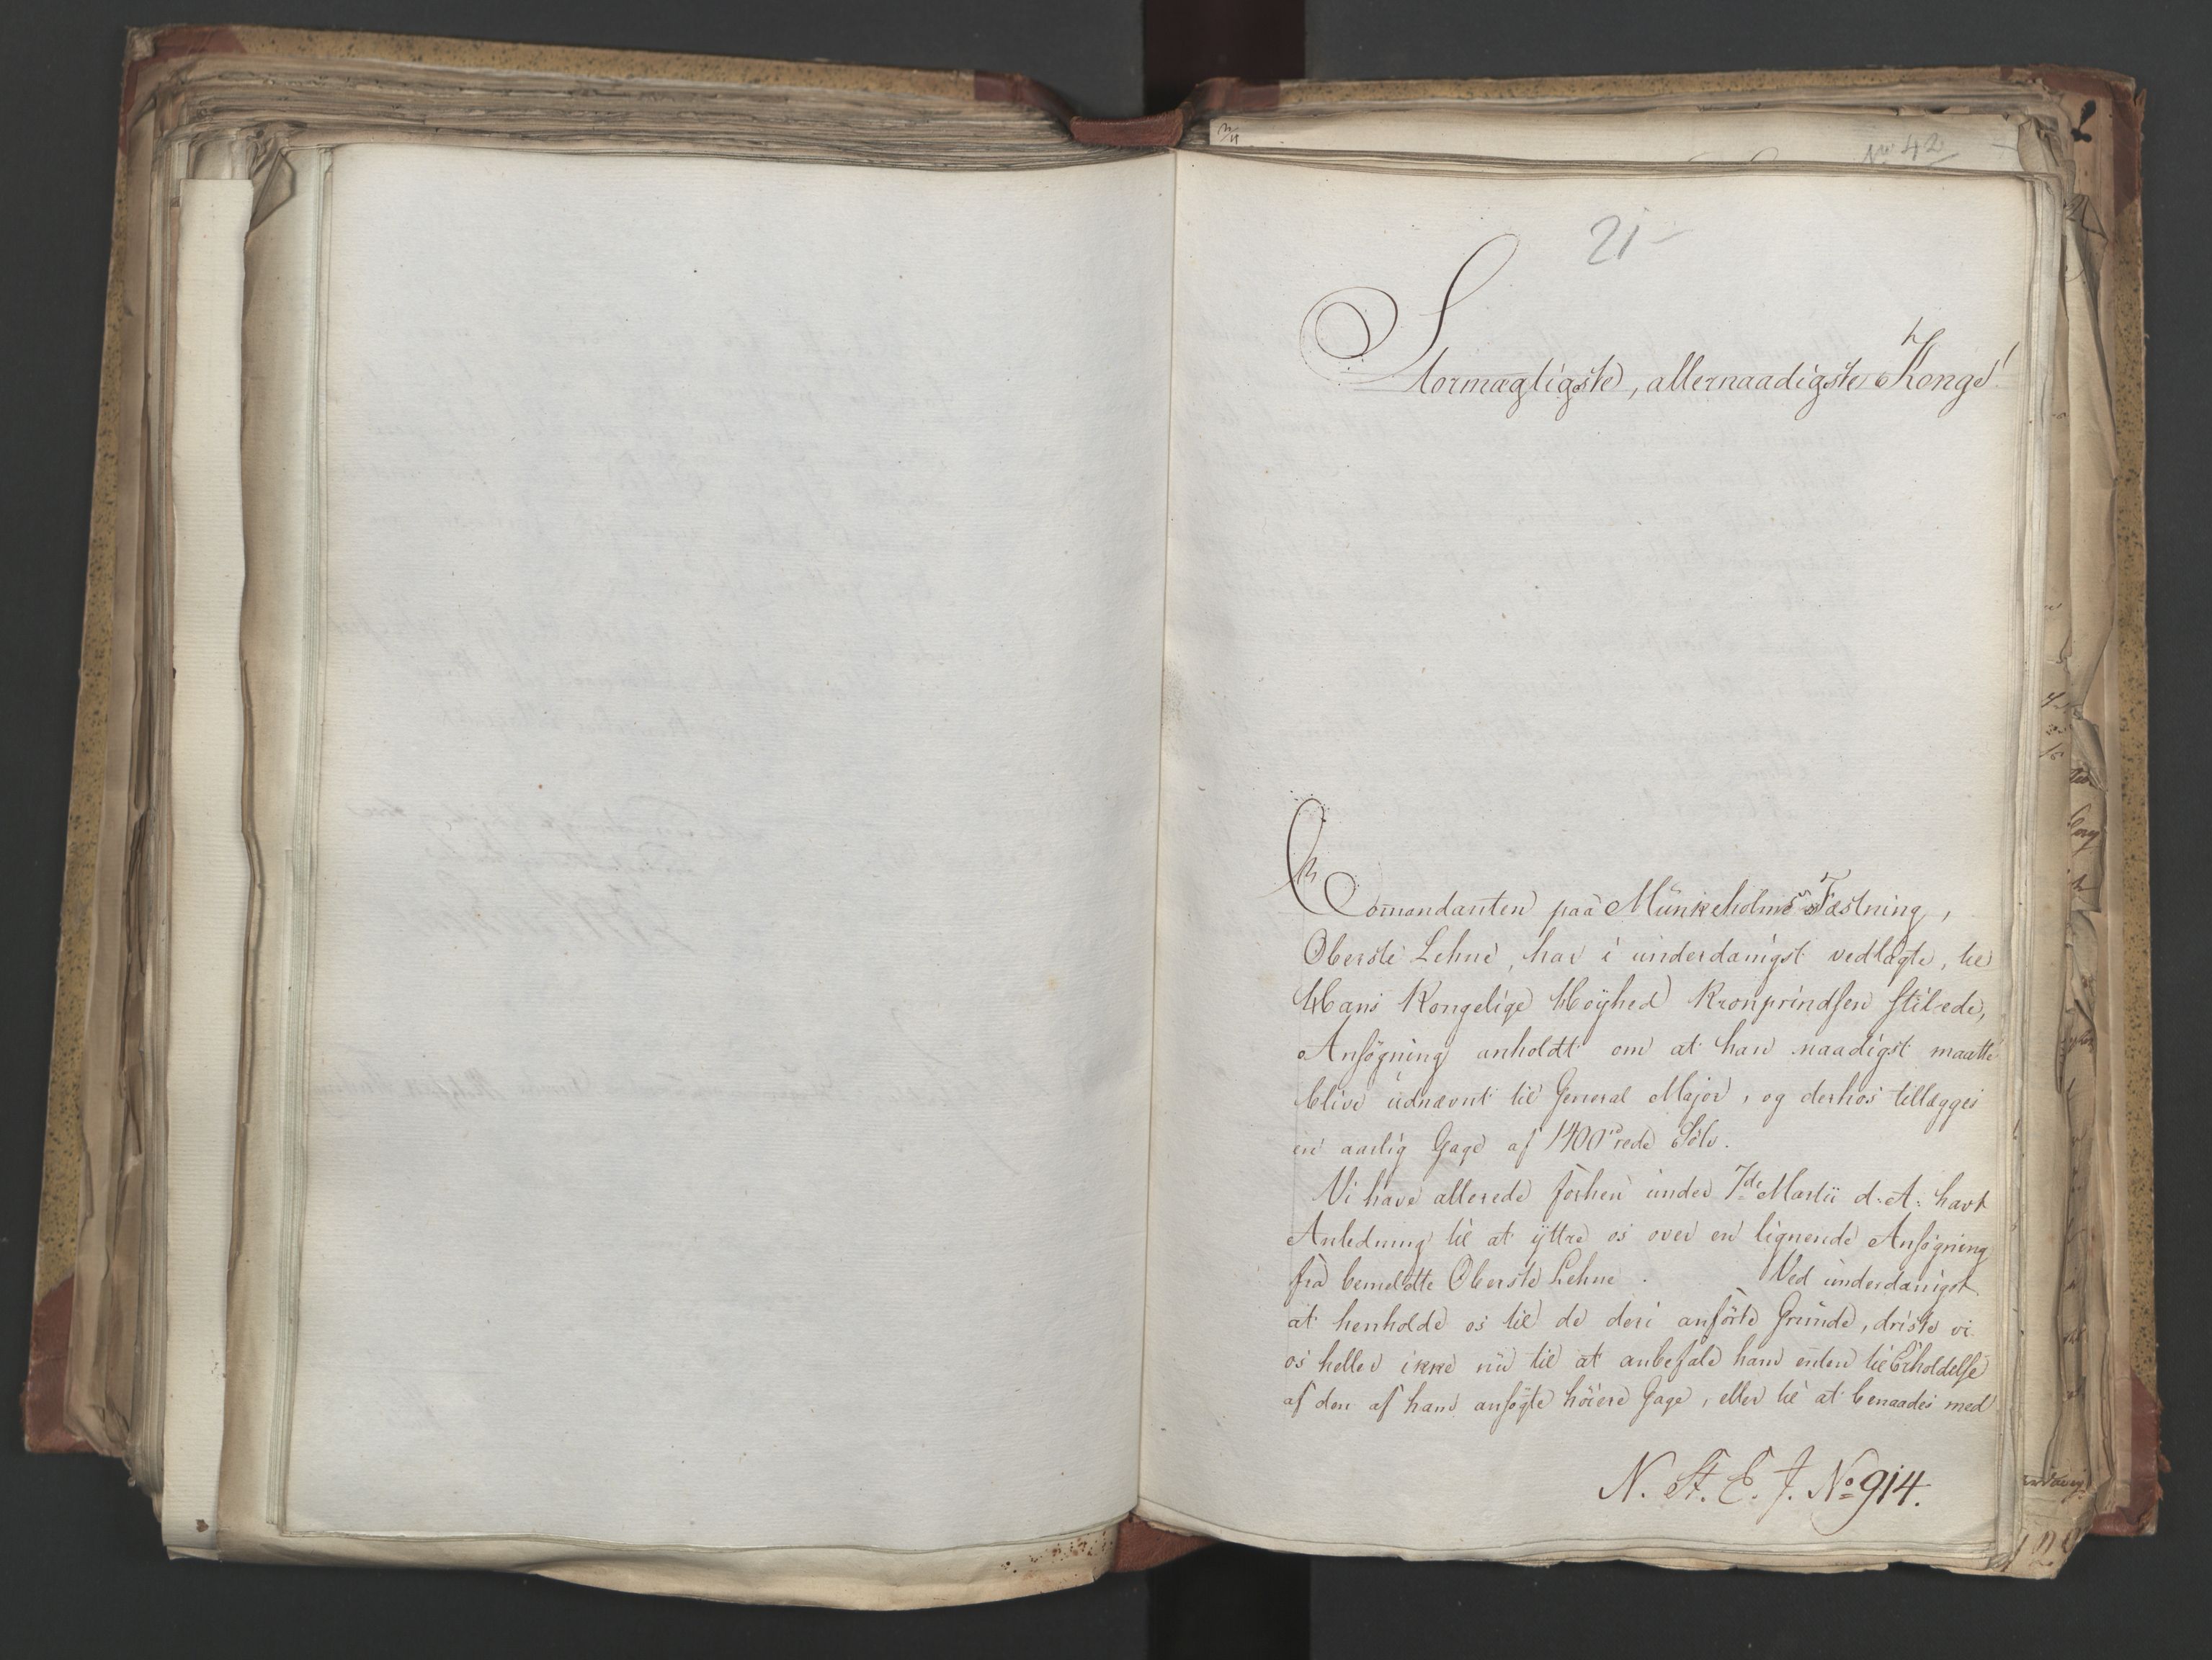 No 42
21
Stormægtigste, allernaadigste Konge!
Com̄andanten paa Munkeholms Fæstning,
Oberste Lehne, har i underdanigst vedlagte, til
Hans Kongelige Høyhed Kronprindsen stilede,
Ansøgning anholdt om at han naadigst maatte
blive udnævnt til General Major, og derhos tillægges
en aarlig Gage af 1400 rede Sølv.
Vi have allerede forhen under 7de Martii d: A: havt
Anledning til at yttre os over en lignende Ansøgning
fra bemeldte Oberste Lehne. Ved underdanigst
at henholde os til de deri anførte Grunde, driste vi
os heller ikke nu til at anbefale ham enten til Erholdelse
af den af ham ansøgte høiere Gage, eller til at benaades med
N. St. E. J. No 914.